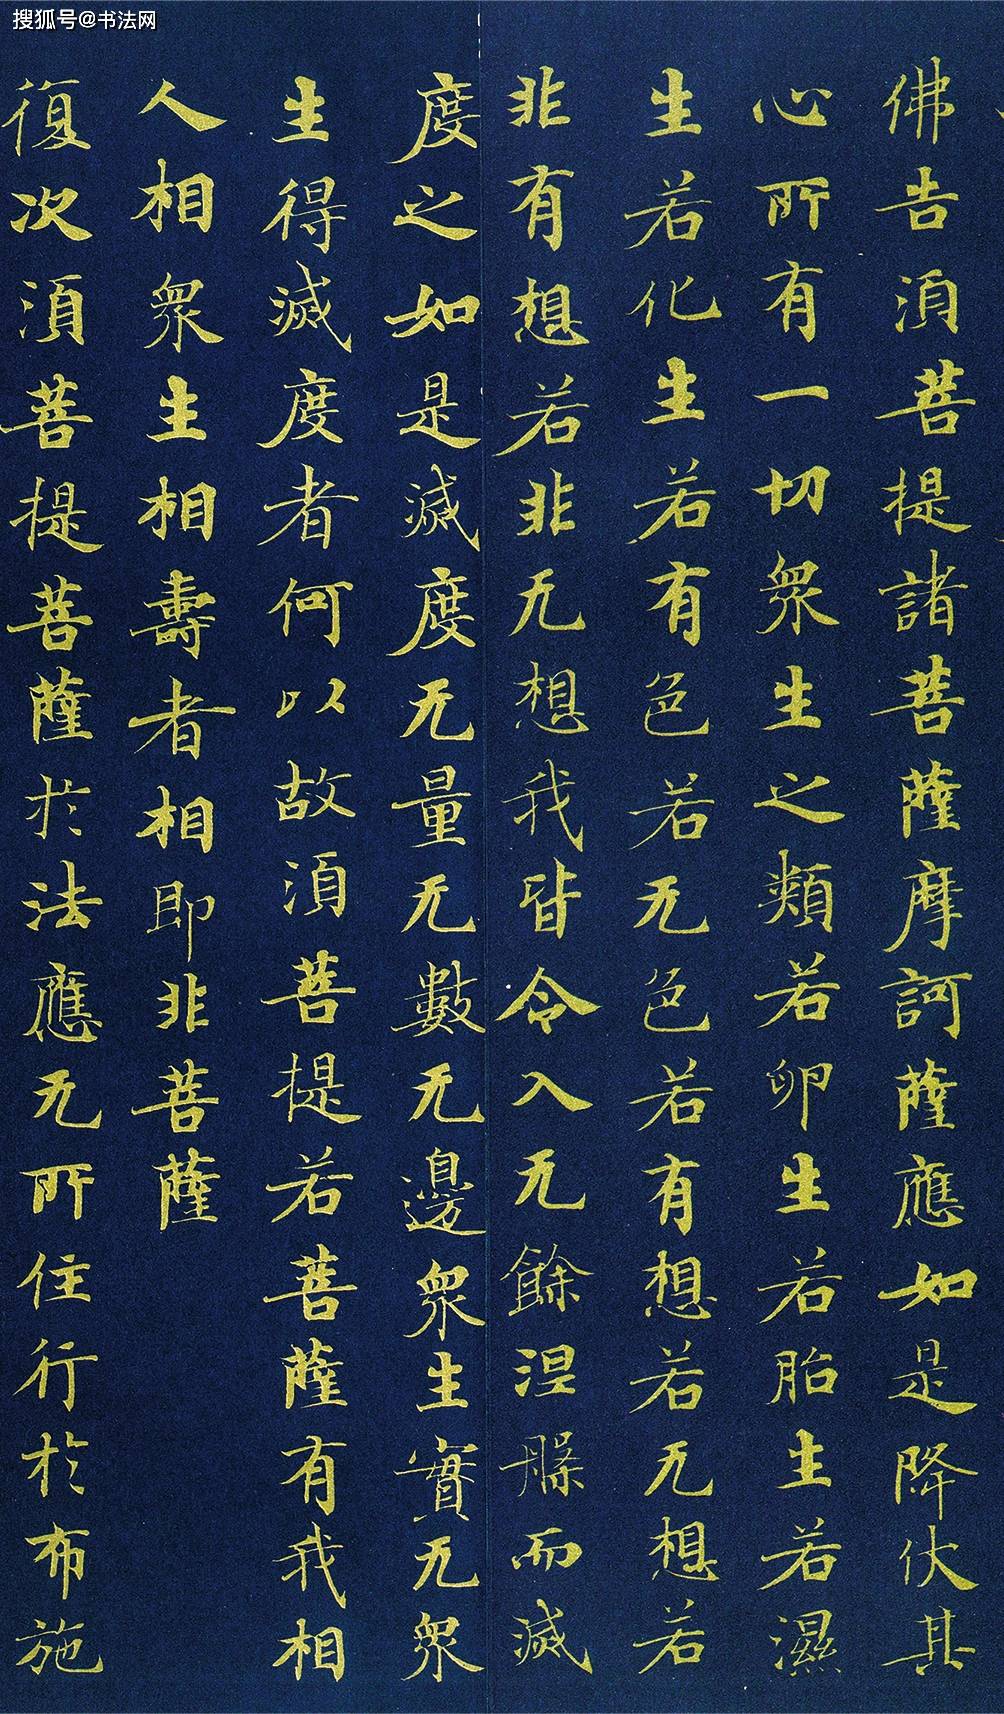 搜狐号@书法网
佛告須菩提諸菩薩摩訶薩應如是降伏其
心所有一切衆生之類若卵生若胎生若濕
生若化生若有色若无色若有想若无想若
非有想若非无想我皆令入无餘涅槃而滅
度之如是滅度无量无數无邊衆生實无衆
生得滅度者何以故須菩提若菩薩有我相
人相衆生相壽者相即非菩薩
復次須菩提菩薩於法應无所住行於布施